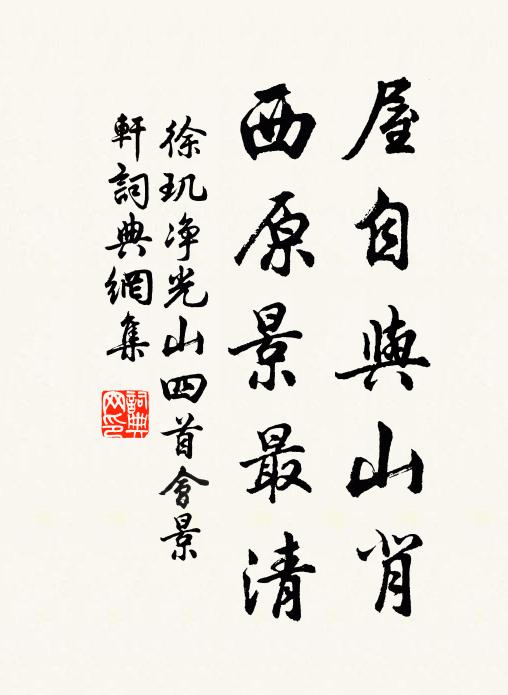 屋自與山肖
西原景最清
徐玑净光山四首會景
軒詞典網集
詞典
网印